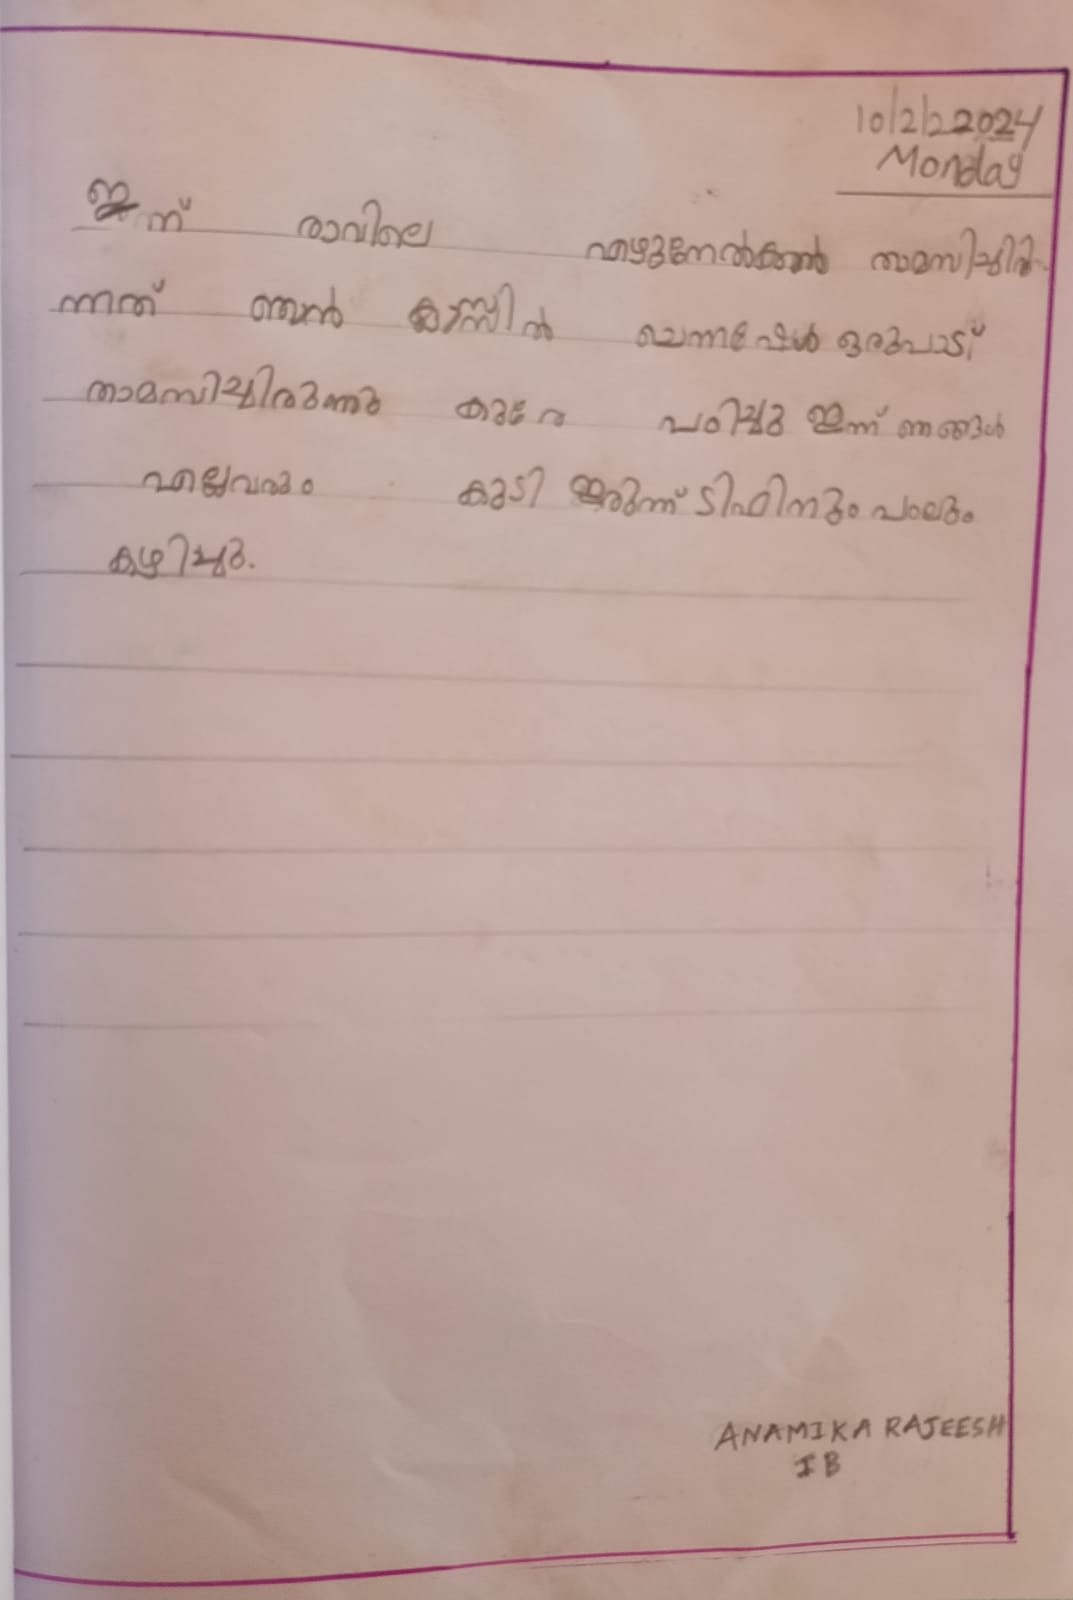 10/2/22024
Monday
ഇന്ന് രാവിലെ എഴുനേൽകാൽ താമസിച്ചിരി
ന്നത് ഞൻ ക്ലാസ്സിൽ ചെന്നപ്പേൾ ഒരുപാട്
താമസിച്ചിരുന്നു കുറേ പഠിച്ചു ഇന്ന് ഞങ്ങൾ
എല്ലവരും കുടി ഇരുന്ന് ടിഫിനും പാലും
കഴിച്ചു.
ANAMIKA RAJEESH
I B